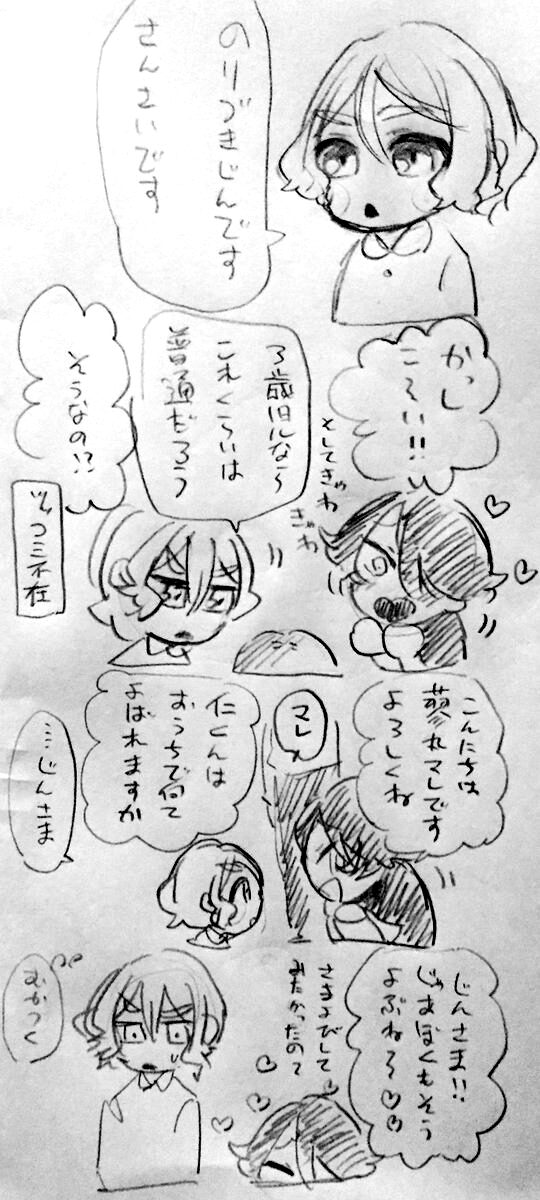 のりづきじんです
さんさいです
かっし
こ〜い!!
としてきゃわ
きゃわ
3歳児なら
これくらいは
普通だろう
そうなの!?
ツッコミ不在
こんにちは
葵れマレです
よろしくね
マレ
仁くんは
おうちで何て
よばれますか
…じんさま
じんさま!!
じゃあぼくもそう
よぶね〜♡♡
さまよびして
みたかったの?
むかつく